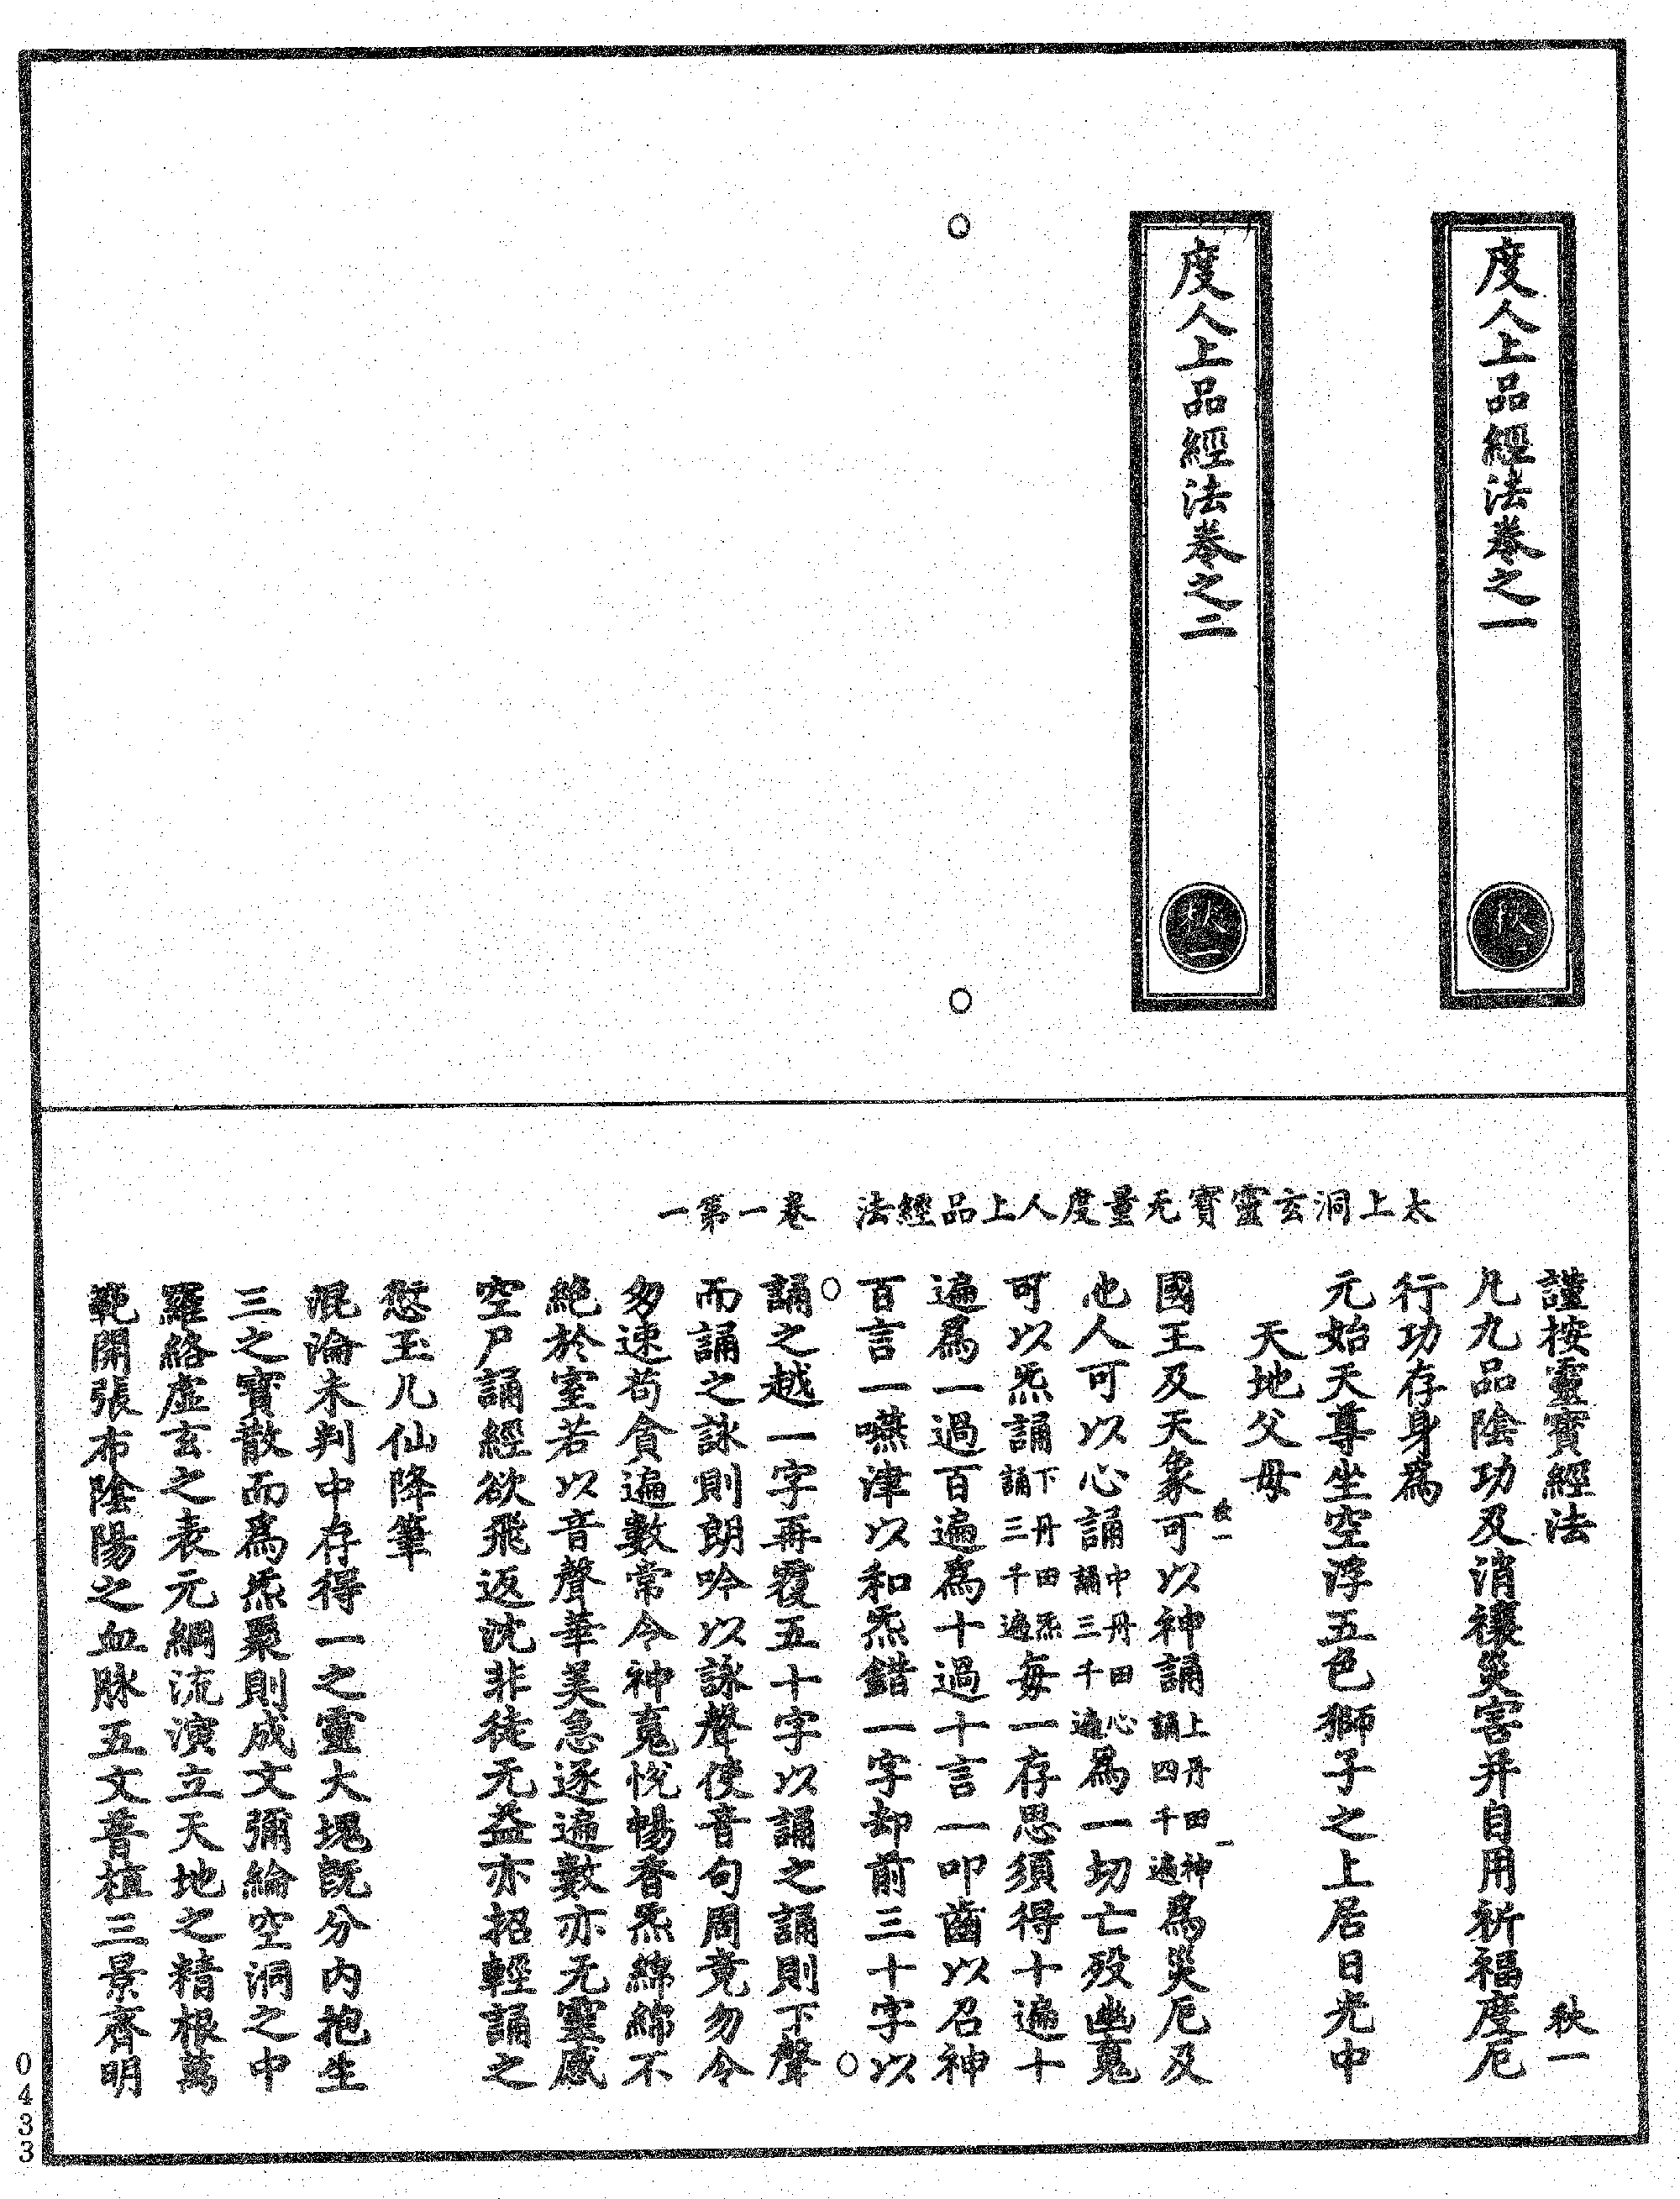 度人上品經法卷之一
秋一
度人上品經法卷之二
秋二
太上洞玄靈寶无量度人上品經法 卷一第一
謹按靈寶經法 秋一
凡九品陰功及消禳災害并自用祈福度厄
行功存身為
元始天尊坐空浮五色獅子之上居日光中
天地父母
秋一 一
國王及天象可以神誦上丹田神誦四千遍為災厄及
他人可以心誦中丹田心誦三千遍為一切亡歿幽䰟
可以炁誦下丹田炁誦三千遍每一存思須得十遍十
遍為一過百遍為十過十言一叩齒以召神
百言一嚥津以和炁錯一字却前三十字以
誦之越一字再覆五十字以誦之誦則下聲
而誦之詠則朗吟以詠聲使音句周竟勿令
匆速苟貪遍數常令神䰟悅暢香炁綿綿不
絕於室若以音聲華美急逐遍數亦无靈感
空尸誦經欲飛返沈非徒无益亦招輕誦之
愆玉几仙降筆
混淪未判中存得一之靈大塊既分內抱生
三之寶散而為炁聚則成文彌綸空洞之中
羅絡虛玄之表元綱流演立天地之精根萬
範開張布陰陽之血脉五文普植三景齊明
0433